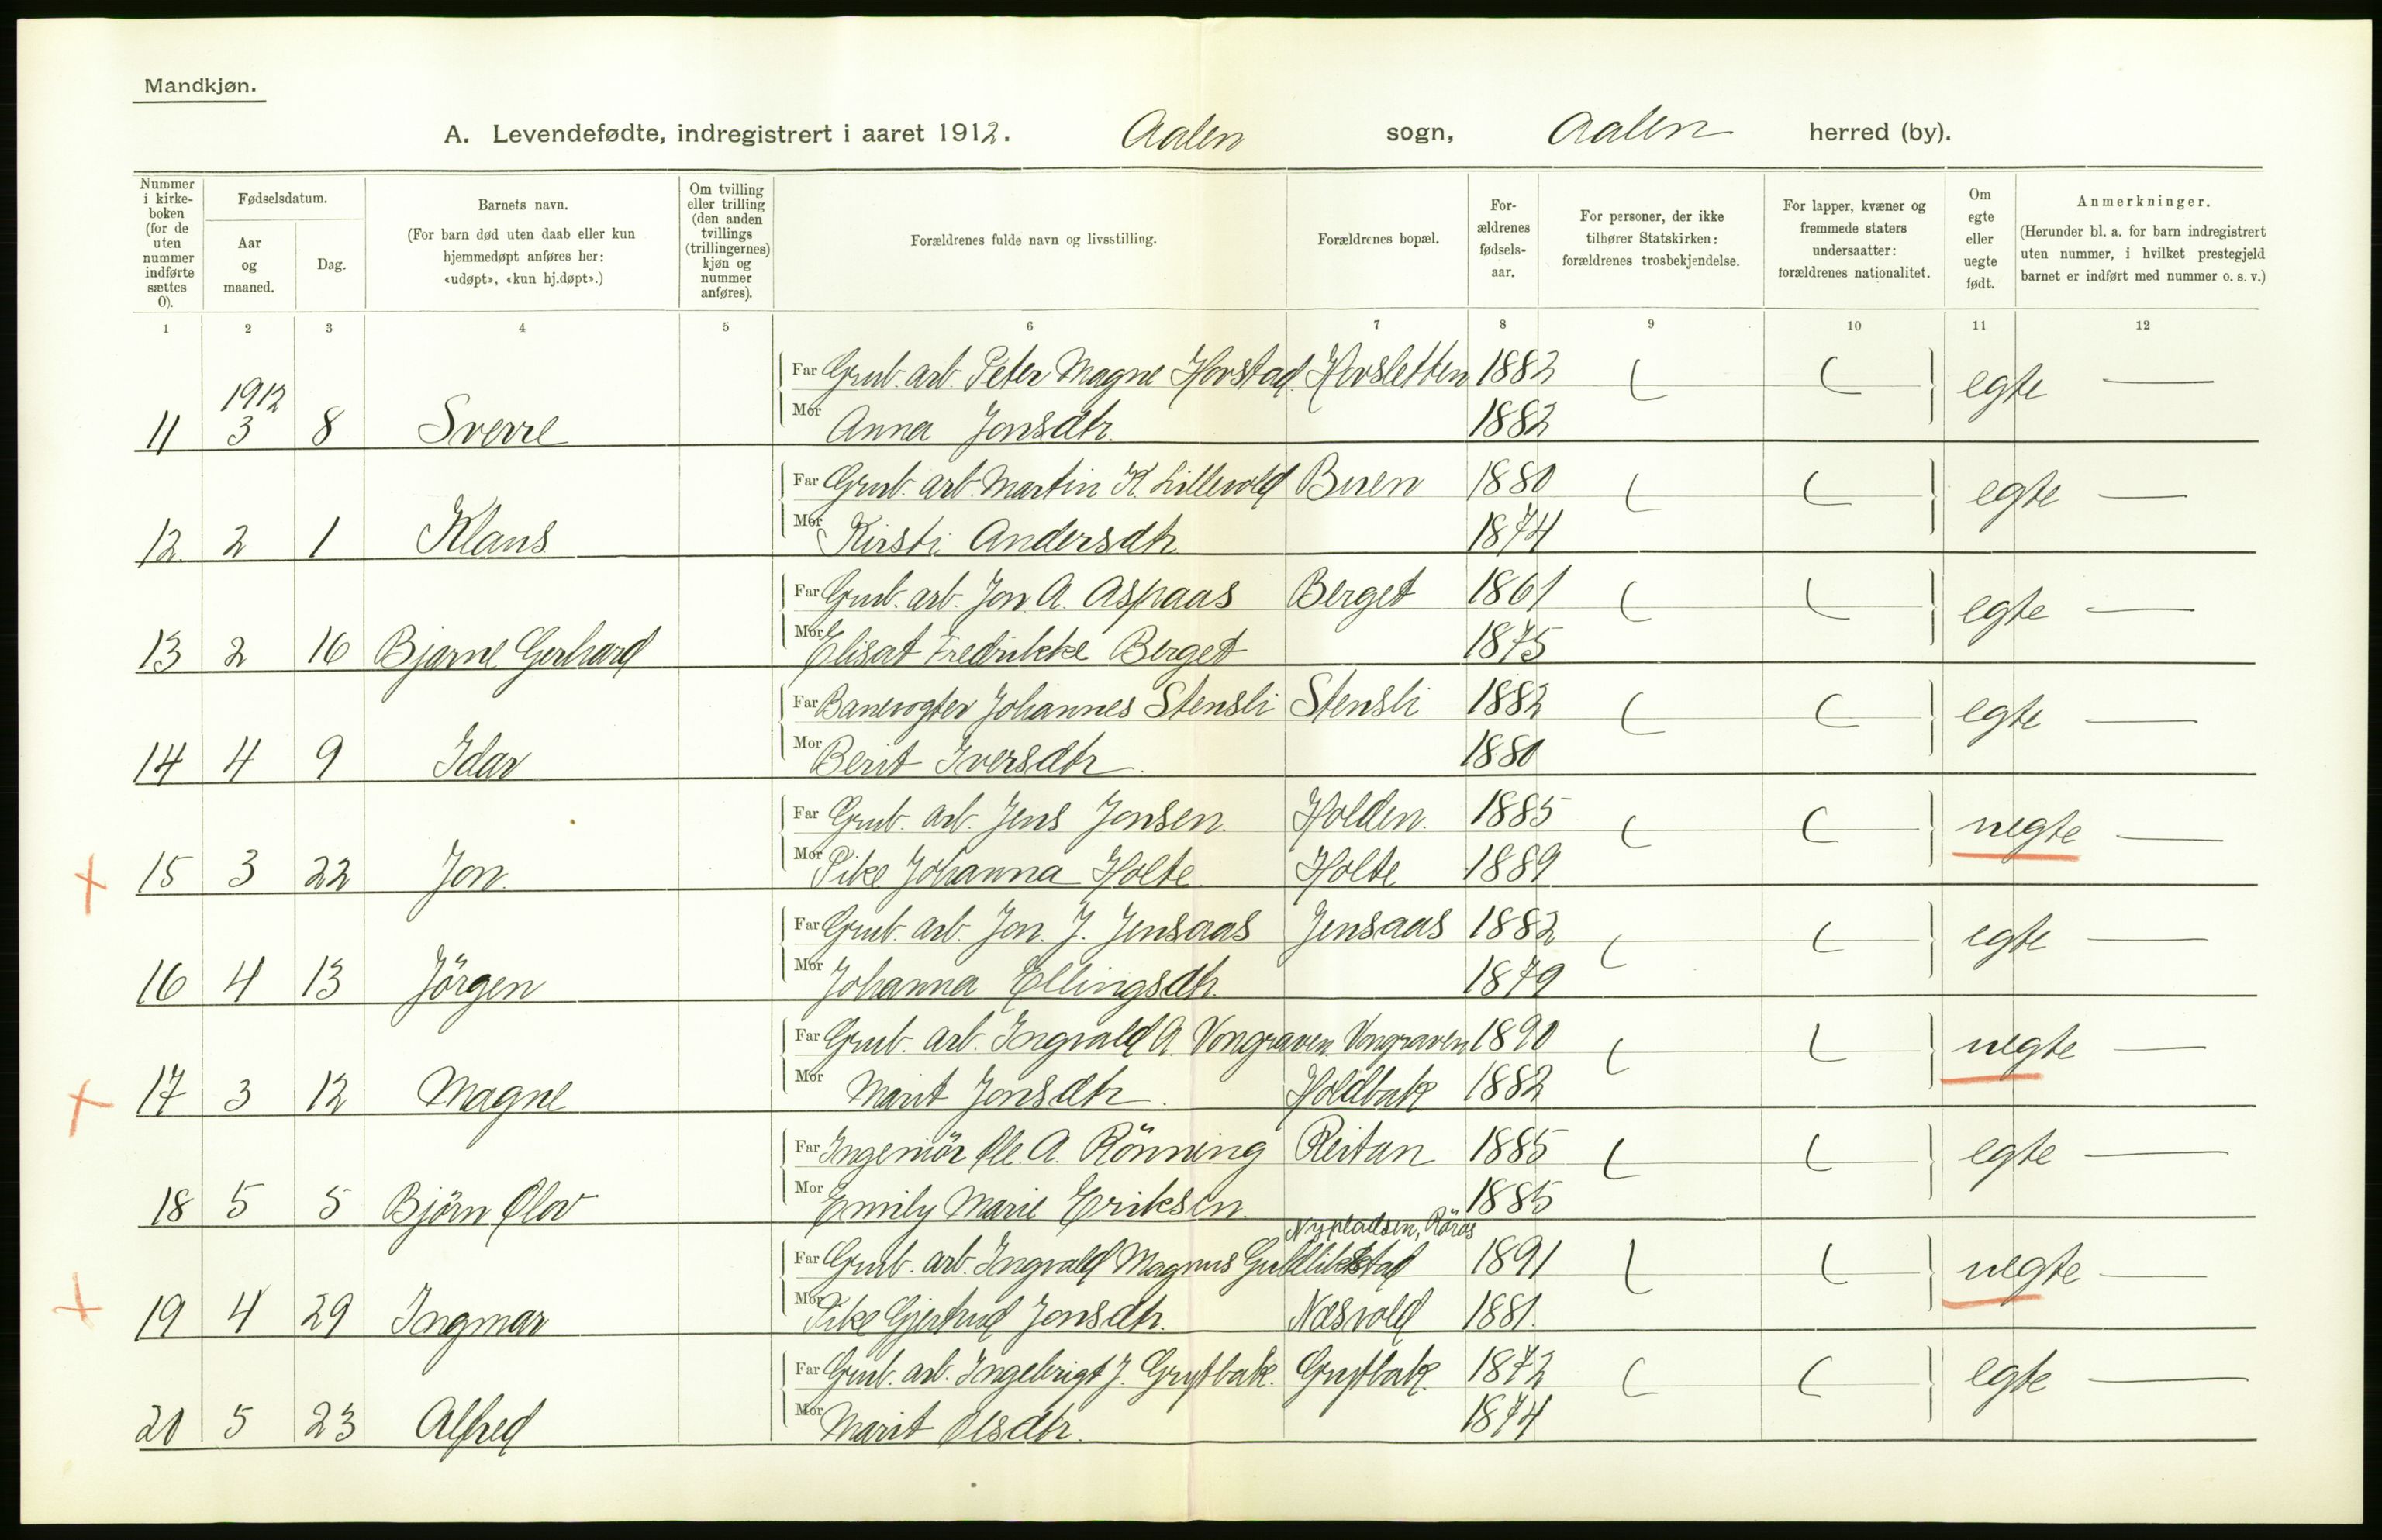 Mandkjøn.
A. Levendefødte, indregistrert i aaret 1912. Aalen sogn, Aalen herred (by).
Nummer i kirke-boken (for de uten nummer indførte sættes 0).
Fødselsdatum.
Aar og maaned.
Dag.
Barnets navn.
(For barn død uten daab eller kun hjemmedøpt anføres her: «udøpt», «kun hj.døpt».)
Om tvilling eller trilling (den anden tvillings (trillingernes) kjøn og nummer anføres).
Forældrenes fulde navn og livsstilling.
Forældrenes bopæl.
For-ældrenes fødsels-aar.
For personer, der ikke tilhører Statskirken: forældrenes trosbekjendelse.
For lapper, kvæner og fremmede staters undersaatter: forældrenes nationalitet.
Om egte eller uegte født.
Anmerkninger.
(Herunder bl. a. for barn indregistrert uten nummer, i hvilket prestegjeld barnet er indført med nummer o. s. v.)
1 2 3 4 5 6 7 8 9 10 11 12
Far Grub. arb. Peter Magne Hovstad. Hovsletten 1882 egte —
1912
11 3 8 Sverre Mor Anna Jonsdtr. 1882
Far Grub. arb. Martin K. Lillevold Buen 1880 egte —
12. 2 1 Klaus Mor Kirsti Andersdtr 1874
Far Grub. arb. Jon A. Aspaas Berget 1861 egte —
13 2 16 Bjarne Gerhard Mor Elisat Fredrikke Berget 1875
Far Banevogter Johannes Stensli Stensli 1882 egte —
14 4 9 Idar Mor Berit Iversdtr. 1880
Far Grub. arb. Jens Jonsen. Holden. 1885 uegte —
15 3 22 Jon. Mor Pike Johanna Holte Holte 1889
Far Grub. arb. Jon. J. Jensaas Jensaas 1882 egte —
16 4 13 Jörgen Mor Johanna Ellingsdtr. 1879
Far Grub. arb. Ingvald A. Vongraven. Vongraven 1890 uegte —
17 3 12 Magne Mor Marit Jonsdtr. Holdbak 1882
Far Ingeniör Ole A. Rönning Reitan 1885 egte —
18 5 5 Björn Olov Mor Emily Marie Eriksen 1885
Nypladsen, Röros
Far Grub. arb. Ingvald Magnus Gullikstad 1891 uegte —
19 4 29 Ingmar Mor Pike Gjertrud Jonsdtr. Næsvold 1881.
Far Grub. arb. Ingebrigt J. Grytbak. Grytbak. 1872 egte —
20 5 23 Alfred Mor Marit Olsdtr. 1874